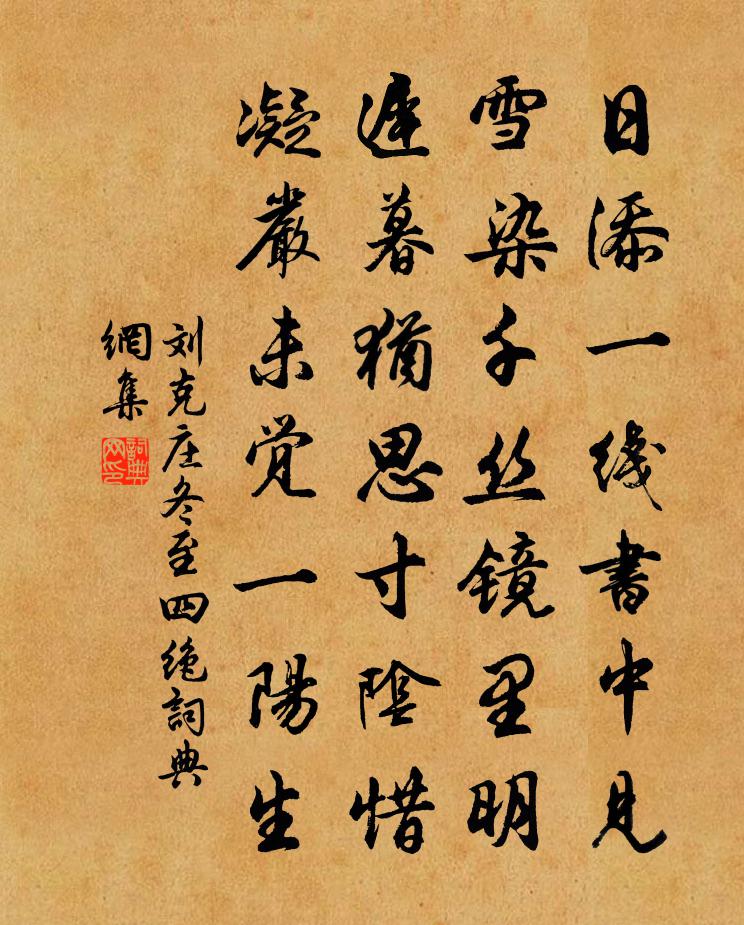 日添一线書中見
雪染千丝镜里明
遲暮猶思寸陰惜
凝嚴未觉一陽生
刘克庄冬至四绝詞典
網集
詞典网印